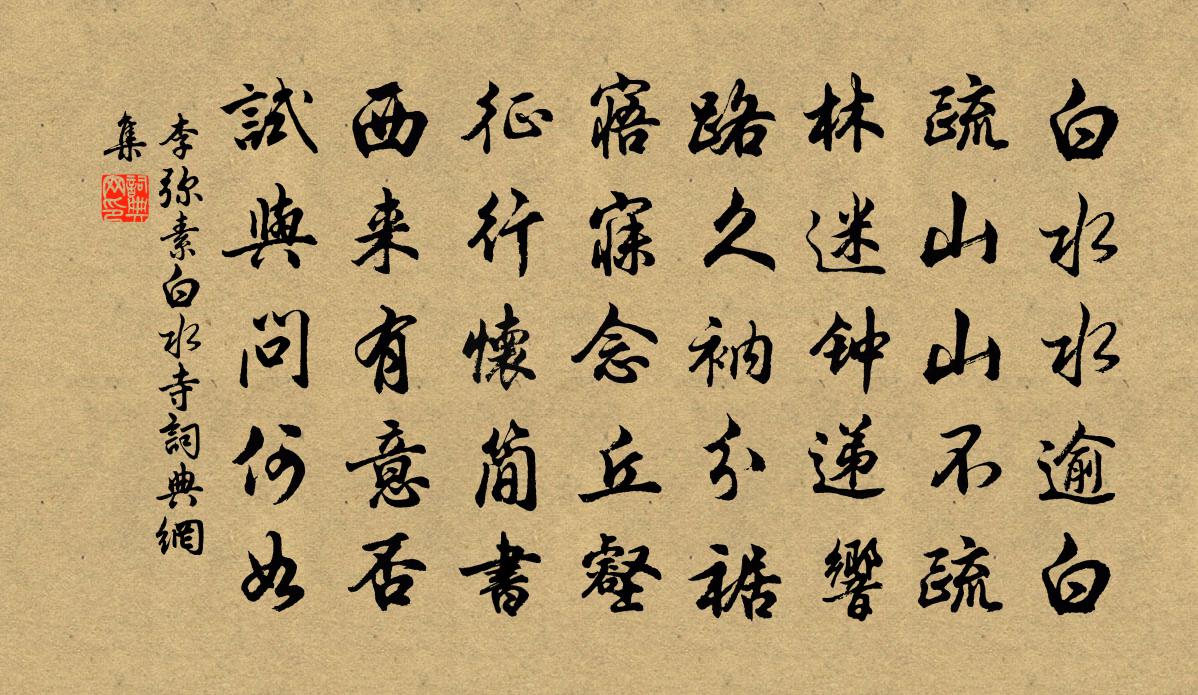 白水水逾白
疏山山不疏
林迷钟递響
路久衲分裾
寤寐念丘壑
征行懷简書
西来有意否
試與問何如
李弥素白水寺詞典網
集
詞典
网印